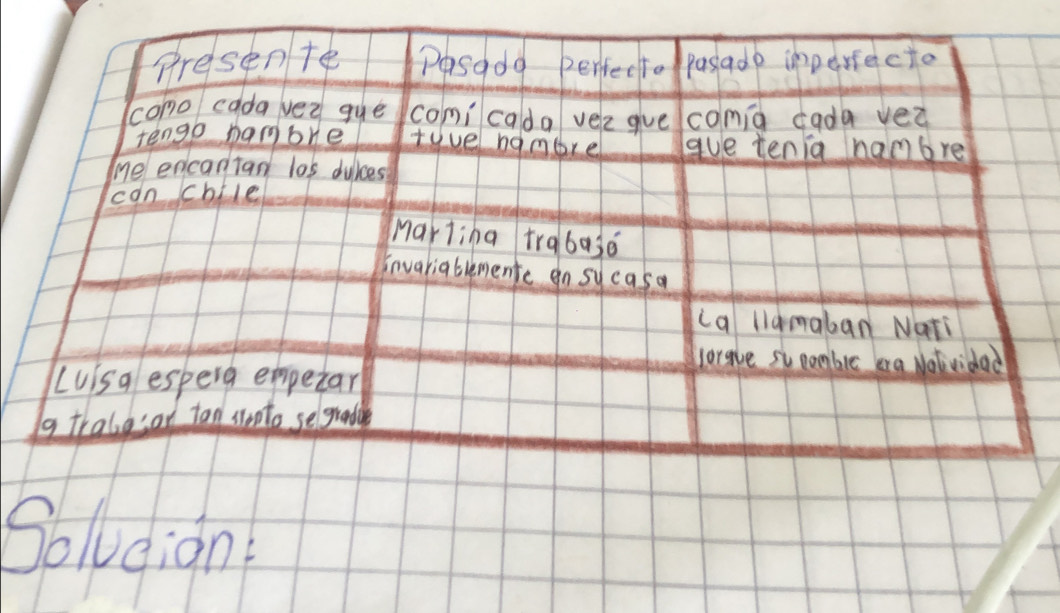 Presente Pasado perfecto pasado imperfecto
como cada vez que comí cada vez que comía cada vez
tengo hambre tuve hambre que tenía hambre
Me encantan los dulces
con chile
Martina trabajó
invariablemente en su casa
La llamaban Nati
porque su nombre era Natividad
Luisa espera empezar
a trabajar tan pronto se gradúe
Solución: